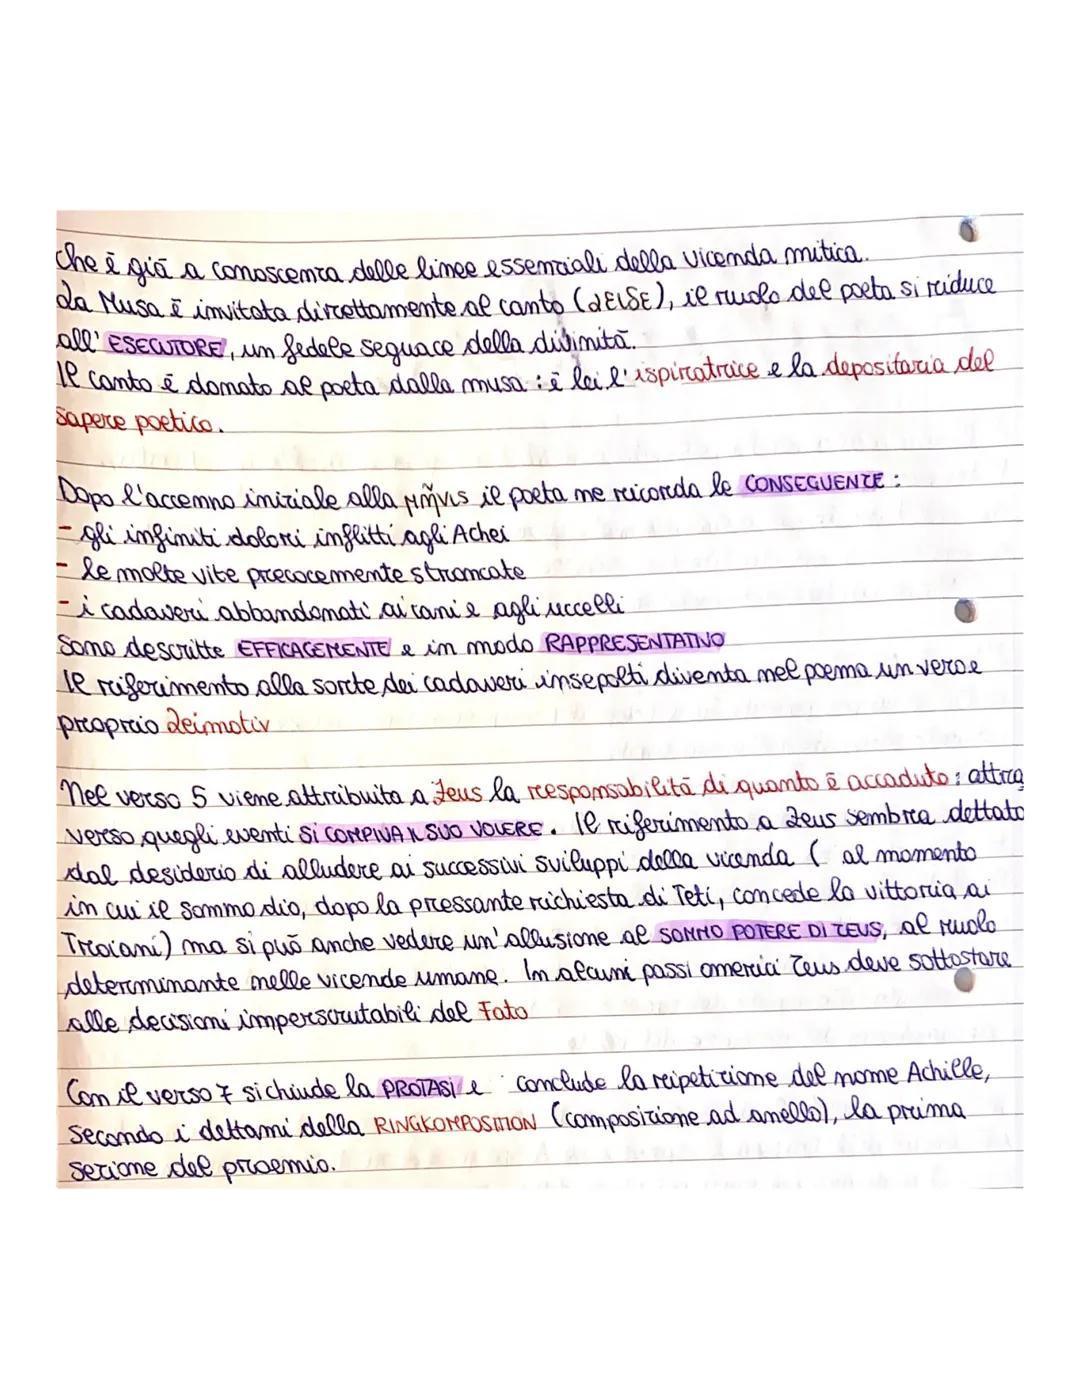 che è già a conoscenza delle linee essenziali della vicenda mitica.
La Musa è invitata direttamente al canto (ἄειδε), il ruolo del poeta si riduce
all' ESECUTORE, un fedele seguace della divinità.
Il canto è donato al poeta dalla musa : è lei l'ispiratrice e la depositaria del
sapere poetico.
Dopo l'accenno iniziale alla μῆνις il poeta ne ricorda le CONSEGUENZE :
- gli infiniti dolori inflitti agli Achei
- le molte vite precocemente stroncate
- i cadaveri abbandonati ai cani e agli uccelli
Sono descritte EFFICACEMENTE e in modo RAPPRESENTATIVO
Il riferimento alla sorte dei cadaveri insepolti diventa nel poema un vero e
propraio Leimotiv
Nel verso 5 viene attribuita a Zeus la responsabilità di quanto è accaduto : attra
verso quegli eventi SI COMPIVA IL SUO VOLERE. Il riferimento a Zeus sembra dettato
dal desiderio di alludere ai successivi sviluppi della vicenda ( al momento
in cui il sommo dio, dopo la pressante richiesta di Teti, concede la vittoria ai
Troiani) ma si può anche vedere un'allusione al SOMMO POTERE DI ZEUS, al ruolo
determinante nelle vicende umane. In alcuni passi omerici Zeus deve sottostare
alle decisioni imperscrutabili del Fato
Con il verso 7 si chiude la PROTASI e conclude la reipetizione del nome Achille,
secondo i dettami della RINGKOMPOSITION (composizione ad anello), la prima
sezione del proemio.